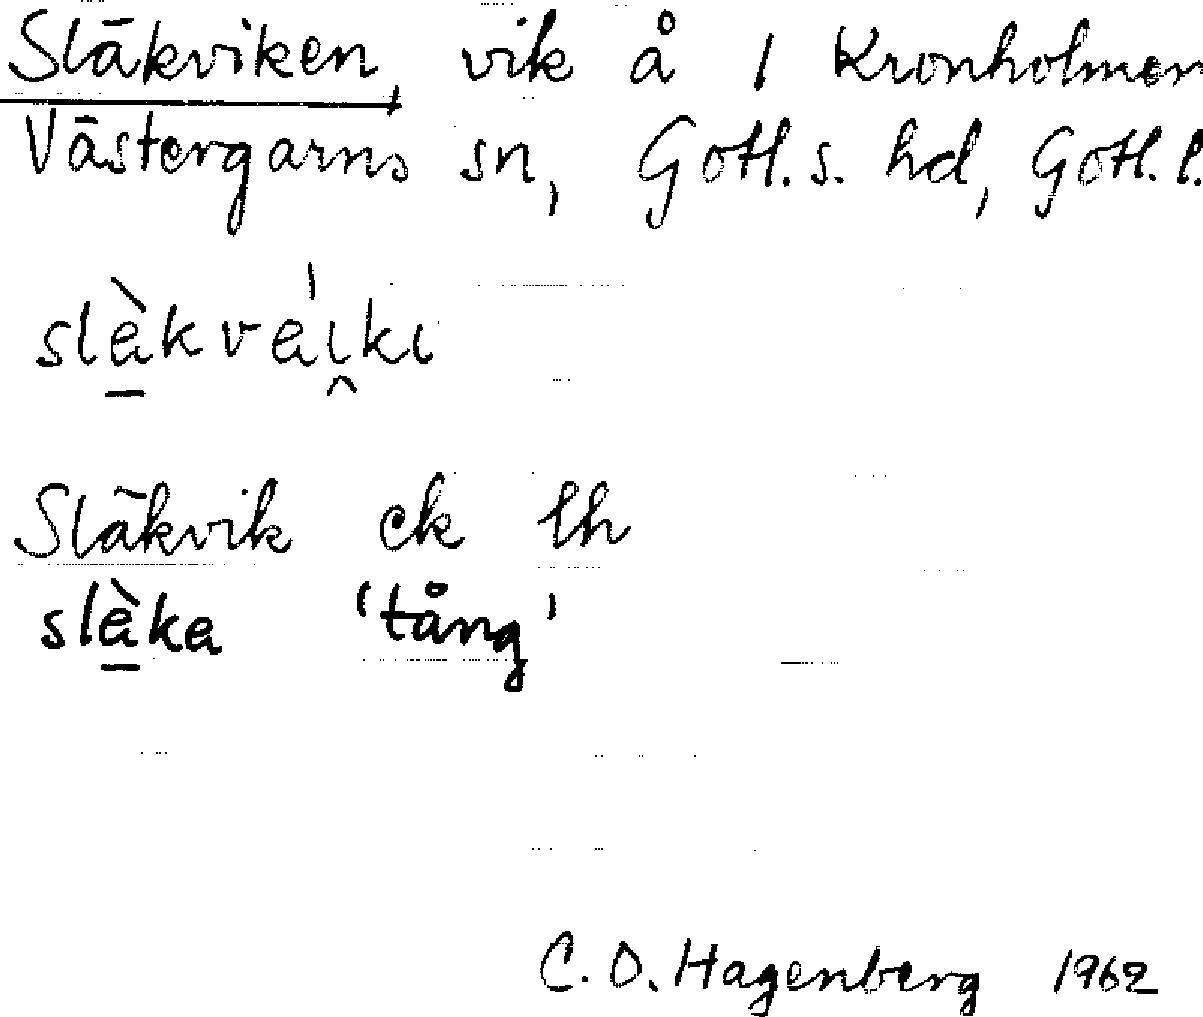 Släkviken, vik å 1 Kronholmen
Västergarns sn, Gotl. s. hd, Gotl. l.
slàkvaikı
Släkvik ek lh
slàka 'tång'
C. O. Hagenberg 1962